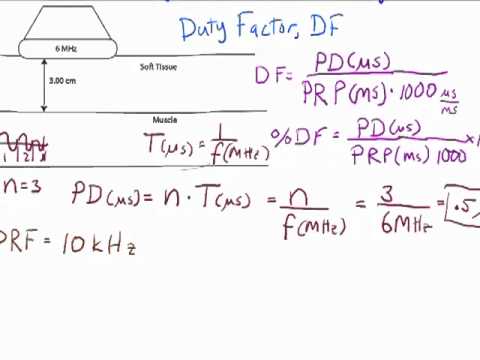 Duty Factor, DF
6 MHz
3.00 cm
Soft Tissue
DF = PD(μs) / PRP(ms) · 1000 μs/ms
Muscle
T(μs) = 1 / f(MHz)
%DF = PD(μs) / PRP(ms) 1000 ×
1 2 3
n = 3
PD(μs) = n · T(μs) = n / f(MHz) = 3 / 6MHz = .5
PRF = 10 kHz